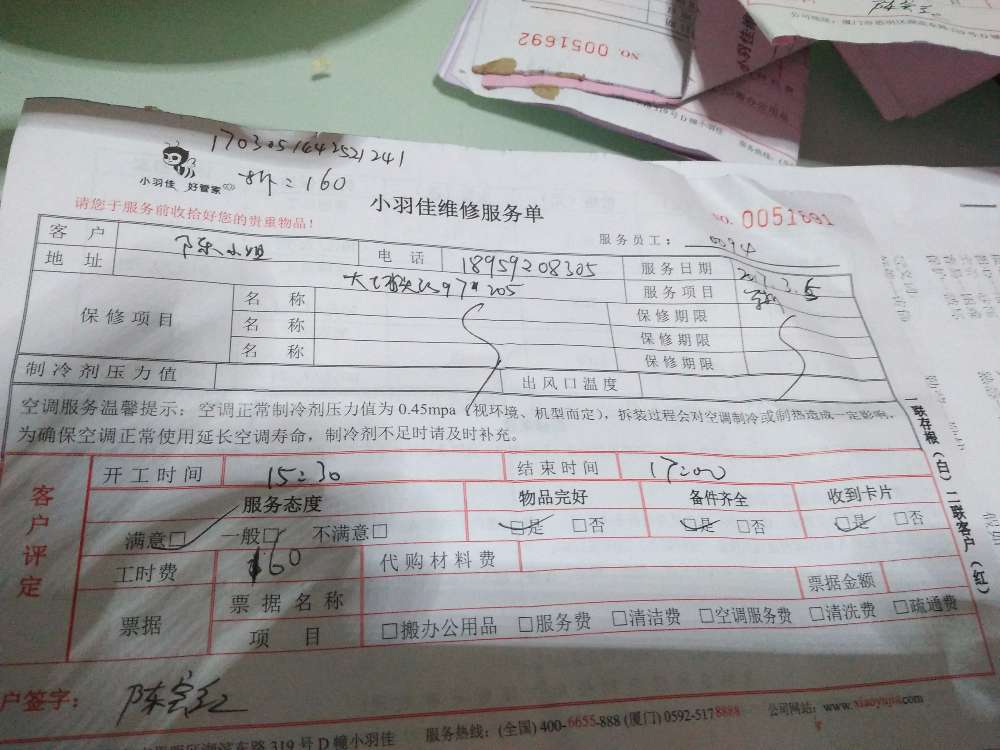 公司地址：厦门市
NO. 0051692
小羽佳维
170305164252 1241
=160
小羽佳 好管家
小羽佳维修服务单
NO. 0051691
请您于服务前收拾好您的贵重物品！
服务员工： 0094
客户 陈小姐 电话 18959208305 服务日期 2017.3.5
地址 97 205 服务项目
保修项目 名称 保修期限
名称 保修期限
名称 保修期限
制冷剂压力值 出风口温度
空调服务温馨提示：空调正常制冷剂压力值为 0.45mpa（视环境、机型而定），拆装过程会对空调制冷或制热造成一定影响，
为确保空调正常使用延长空调寿命，制冷剂不足时请及时补充。
客户评定
开工时间 15:30 结束时间 17:00
服务态度 物品完好 备件齐全 收到卡片
满意□ 一般□ 不满意□ □是 □否 □是 □否 □是 □否
工时费 160 代购材料费
票据 票据名称 票据金额
项目 □搬办公用品 □服务费 □清洁费 □空调服务费 □清洗费 □疏通费
一联存根（白）二联客户（红）
户签字：
路 319 号 D 幢小羽佳 服务热线：(全国) 400-6655-888 (厦门) 0592-5178888 公司网站：www.xiaoyujia.com